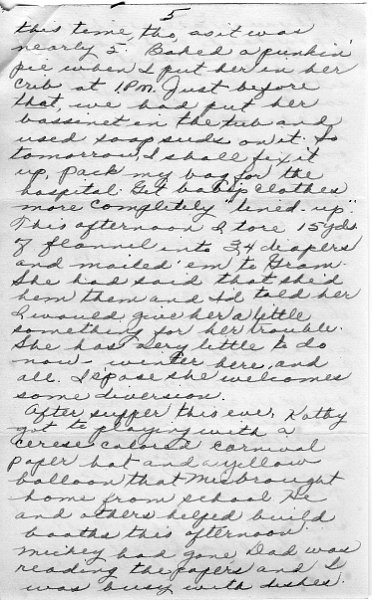 5
this time, tho, as it was
nearly 5. Baked a punkin'
pie when I put her in her
crib at 1 P.M. Just before
that, we had put her
bassinet in the tub and
used soap suds on it. So
tomorrow, I shall fix it
up, pack my bag for the
hospital. Get baby clothes
more completely "lined-up".
This afternoon I tore 15 yds
of flannel into 34 diapers
and mailed 'em to Gram.
She had said that she'd
hem them and I'd told her
I would give her a little
something for her trouble.
She has very little to do
now - winter here, and
all. I s'pose she welcomes
some diversion.
After supper this eve, Kathy
got to playing with a
cerese colored carnival
paper hat and a yellow
balloon that Mic brought
home from school. He
and others helped build
booths this afternoon.
Mickey had gone. Dad was
reading the papers and I
was busy with dishes.